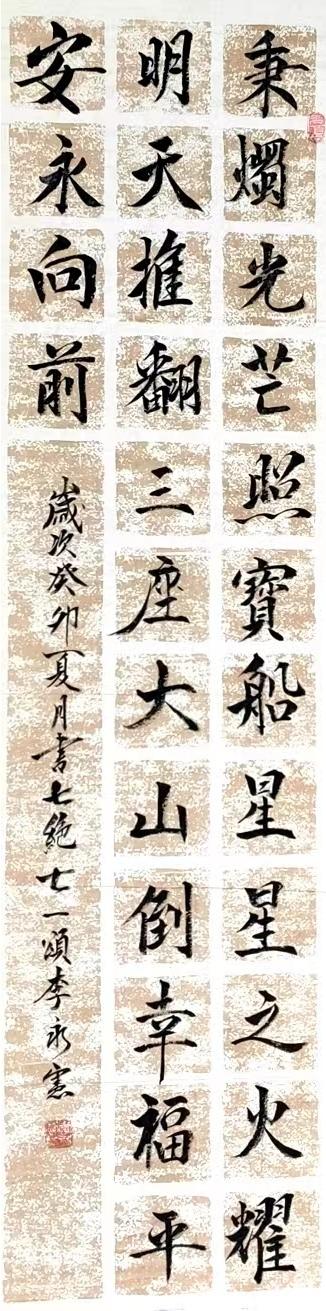 秉燭光芒照寶船星星之火耀
明天推翻三座大山倒幸福平
安永向前
歲次癸卯夏月書七絕七一頌李永憲